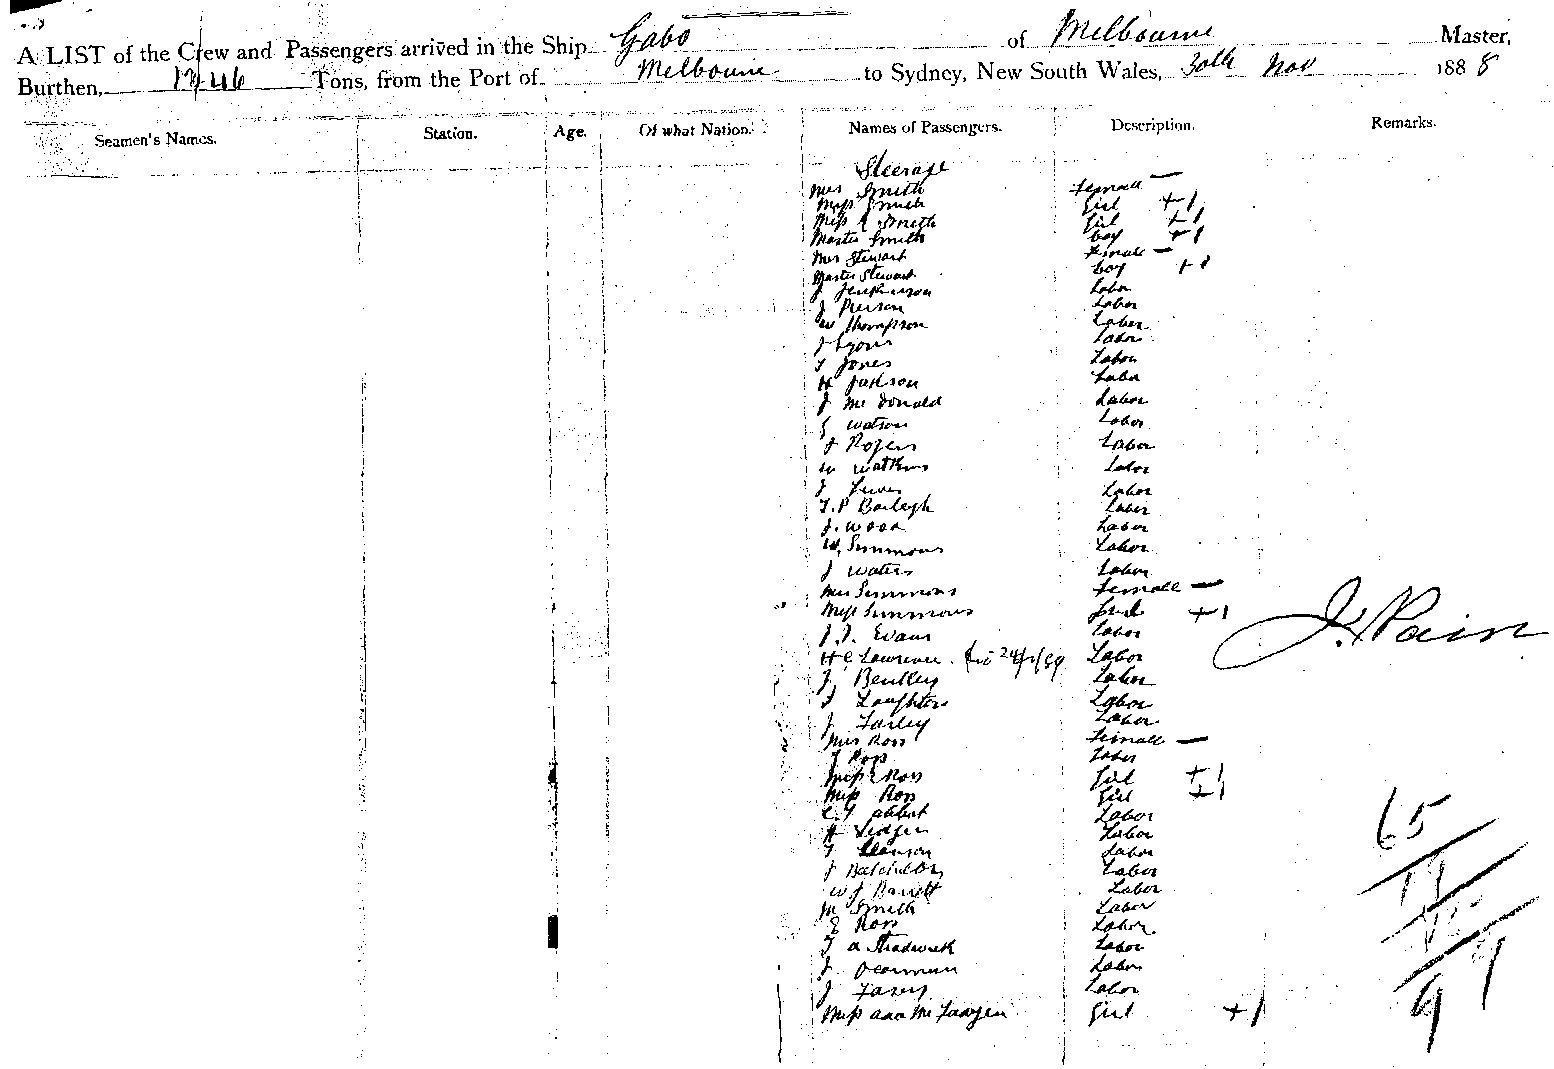 A LIST of the Crew and Passengers arrived in the Ship Gabo of Melbourne Master,
Burthen, Tons, from the Port of Melbourne to Sydney, New South Wales, 30th Nov 1888
Seamen's Names. Station. Age. Of what Nation. Names of Passengers. Description. Remarks.
Steerage
Mrs Smith Female —
Miss Smith Girl +1
Miss Smith Girl +1
Master Smith boy +1
Mrs Stewart Female —
Master Stewart boy +1
J Jenkinson Labor
J Pierson Labor
W Thompson Labor
J Lyons Labor
T Jones Labor
H Jackson Labor
J McDonald Labor
G Watson Labor
J Rogers Labor
W Watkins Labor
J Lewis Labor
T.P Labor
J. Wood Labor
W. Simmons Labor
J Waters Labor
Mrs Simmons Female —
Miss Simmons +1
J.J. Evans Labor
H C Lawrence Labor
J. Bentley Labor
J Laughton Labor
J Farley Labor
Mrs Ross Female —
J Ross Labor
Miss Ross Girl +1
Miss Ross Girl +1
Labor
H Ledger Labor
Labor
J Batchelor Labor
W J Barrett Labor
M Smith Labor
E Ross Labor
Labor
J. Labor
J Labor
Miss Girl +1
J. Pain
65